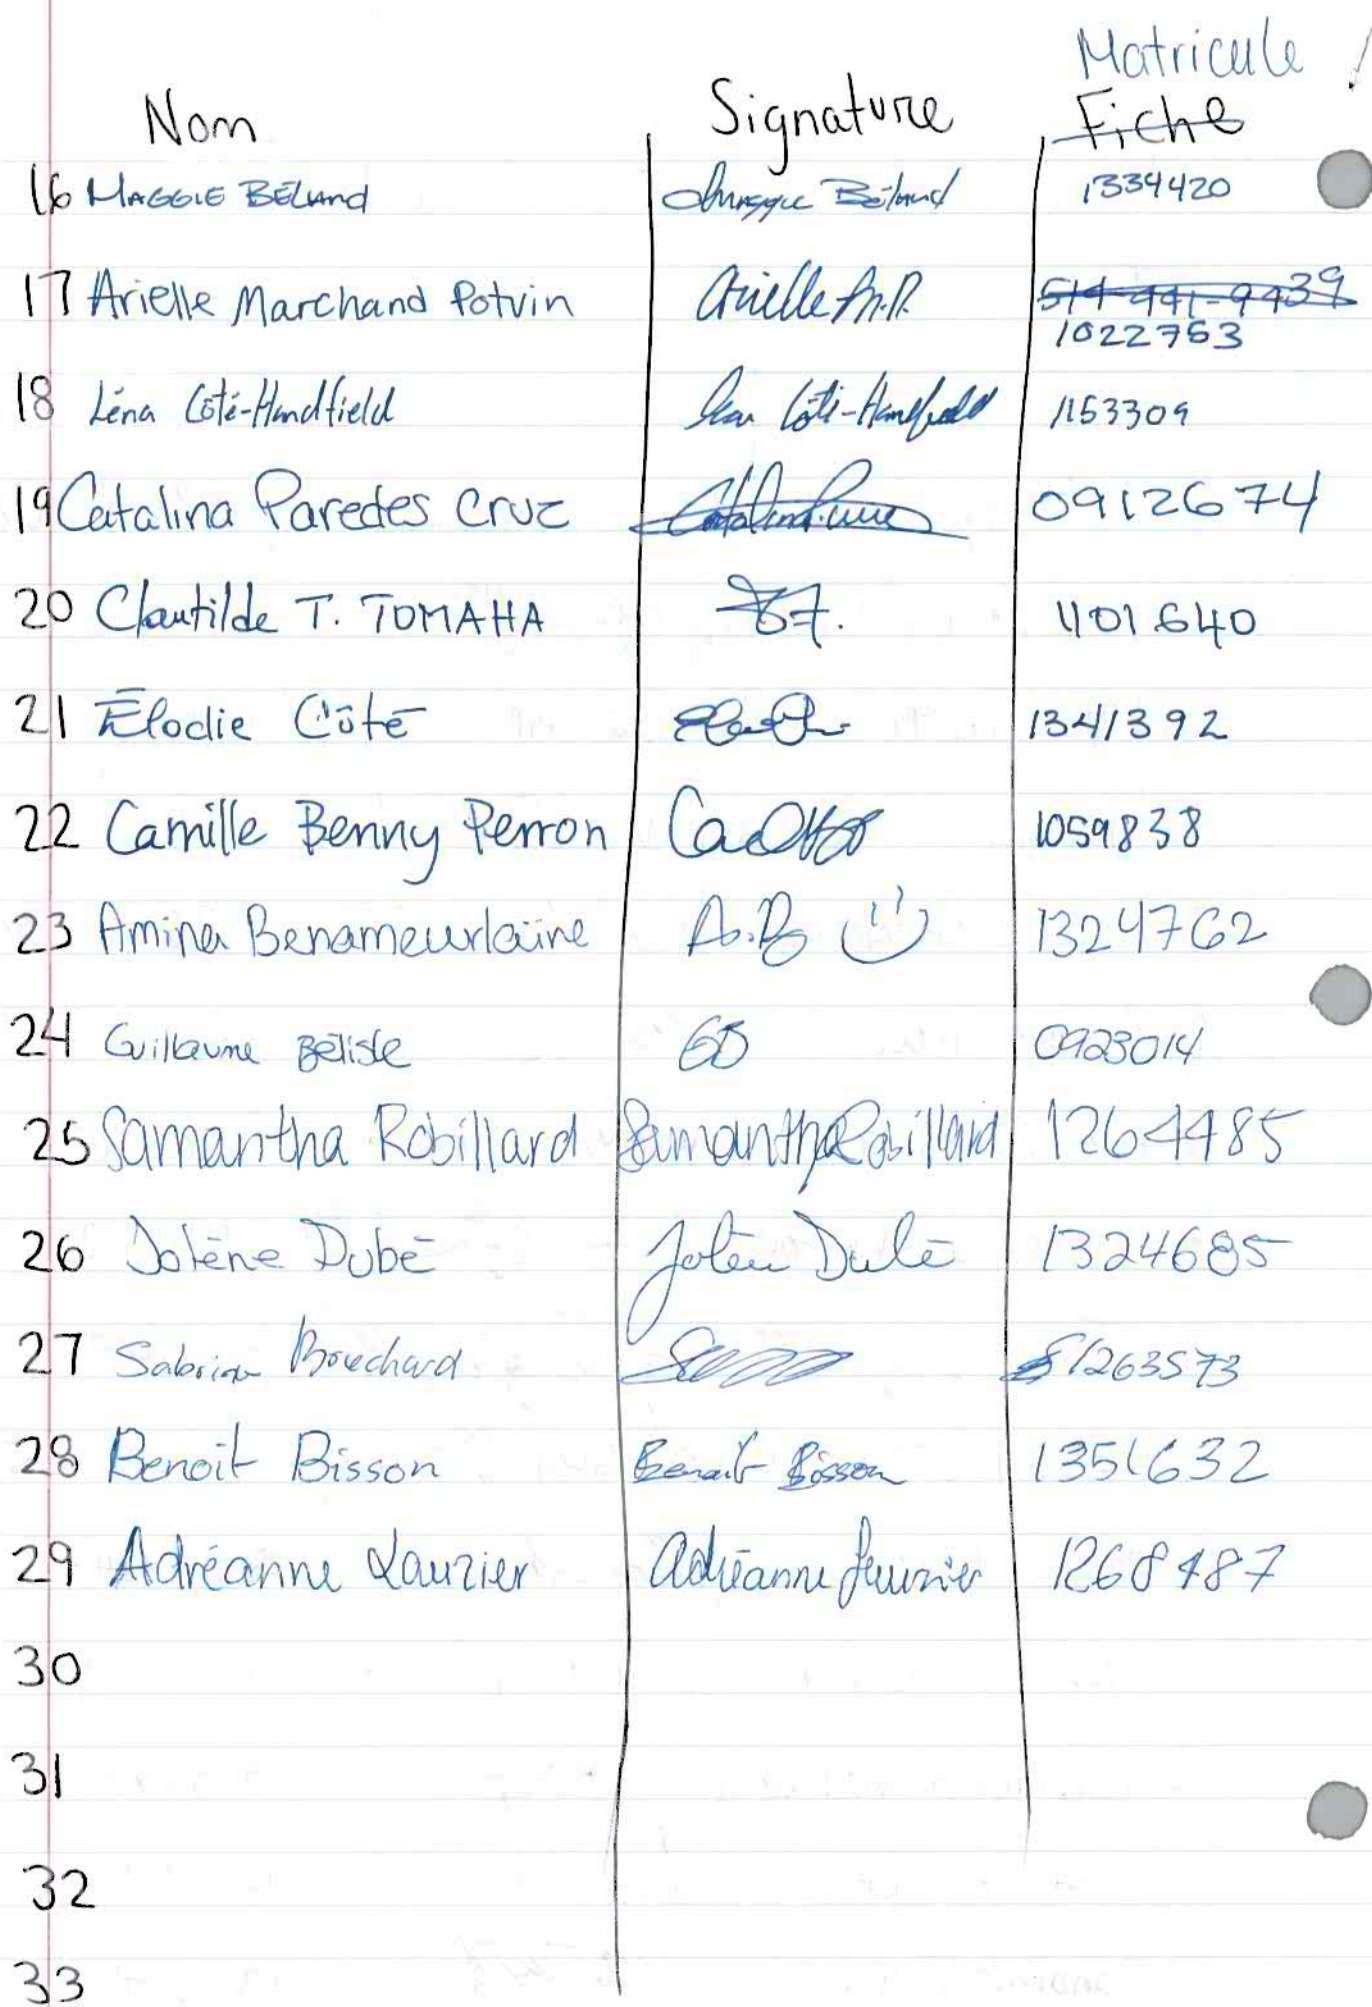 Matricule !
Nom Signature Fiche
16 MAGGIE BÉLAND Maggie Béland 1334420
17 Arielle Marchand Potvin Arielle M.P. 514-441-9439
1022753
18 Léna Côté-Handfield Léna Côté-Handfield 1153309
19 Catalina Paredes Cruz 0912674
20 Clautilde T. TOMAHA 1101640
21 Élodie Côté 1341392
22 Camille Benny Perron 1059838
23 Amina Benameurlaine A.B 1324762
24 Guillaume Bélisle GB 0923014
25 Samantha Robillard Samantha Robillard 1264485
26 Jolène Dubé Jolène Dubé 1324685
27 Sabrina Bouchard 1263573
28 Benoit Bisson Benoit Bisson 1351632
29 Adréanne Lauzier Adréanne Lauzier 1268487
30
31
32
33